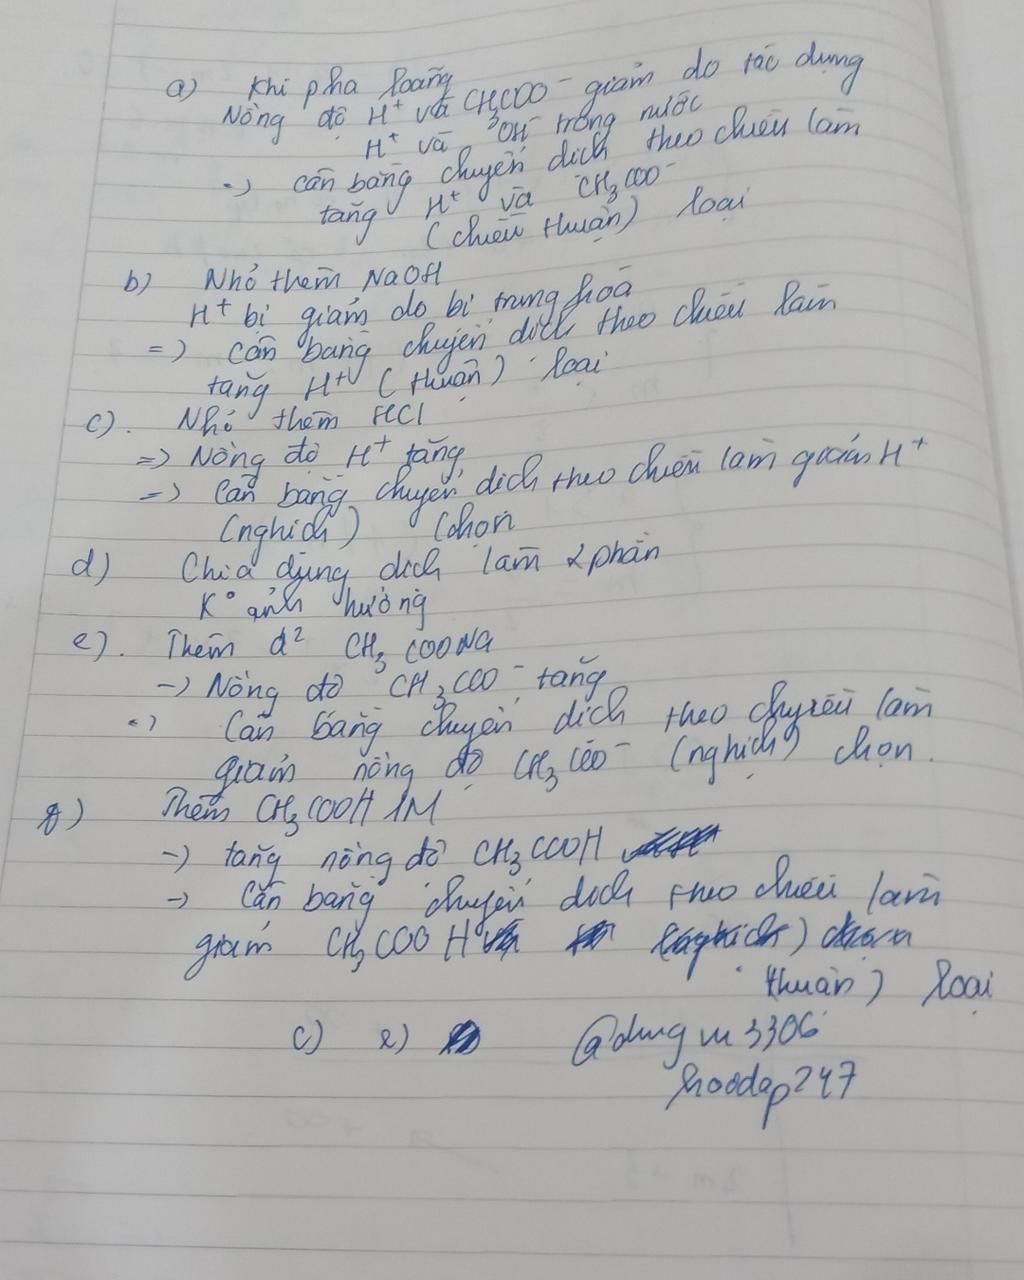 a) Khi pha loãng
Nồng độ H+ và CH3COO- giảm do tác dụng
H+ và OH- trong nước
=) cân bằng chuyển dịch theo chiều làm
tăng H+ và CH3COO-
(chiều thuận) loại
b) Nhỏ thêm NaOH
H+ bị giảm do bị trung hoà
=) cân bằng chuyển dịch theo chiều làm
tăng H+ (thuận) loại
c). Nhỏ thêm HCl
=> Nồng độ H+ tăng
=> Cân bằng chuyển dịch theo chiều làm giảm H+
(nghịch) chọn
d) Chia dụng dịch làm 2 phần
K° ảnh hưởng
e). Thêm d² CH3COONa
-) Nồng độ CH3COO- tăng
=) Cân bằng chuyển dịch theo chyiều làm
giảm nồng độ CH3COO- (nghịch) chọn.
g) Thêm CH3COOH 1M
-) tăng nồng độ CH3COOH
-> Cân bằng chuyển dịch theo chiều làm
giảm CH3COOH
thuận) loại
c) e) @dungvu3306
hoidap247